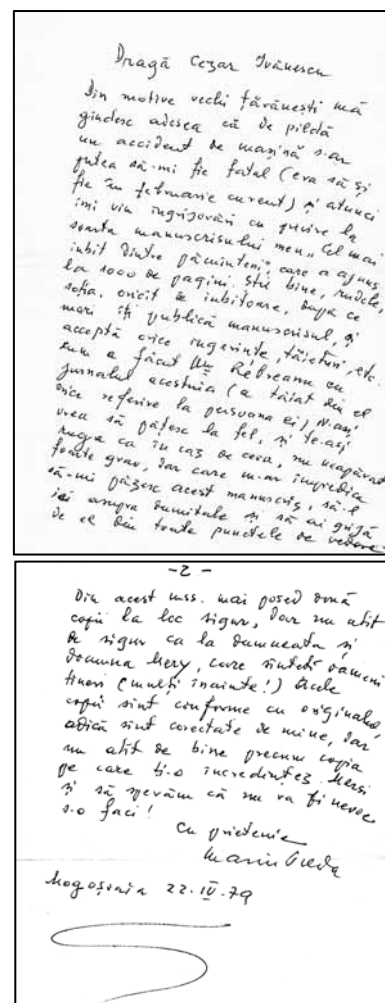 Dragă Cezar Ivănescu
Din motive vechi țărănești mă
gîndesc adesea că de pildă
un accident de mașină s-ar
putea să-mi fie fatal (era să și
fie în februarie curent) și atunci
îmi vin îngrijorări cu privire la
soarta manuscrisului meu „Cel mai
iubit dintre pămînteni", care a ajuns
la 1000 de pagini. Știi bine, rudele,
soția, oricît de iubitoare, după ce
mori îți publică manuscrisul, și
acceptă orice ingerințe, tăieturi, etc.
cum a făcut Rebreanu cu
jurnalul acestuia (a tăiat din el
orice referire la persoana ei) N-aș
vrea să pățesc la fel, și te-aș
ruga ca în caz de ceva, nu neapărat
foarte grav, dar care m-ar împiedica
să-mi păzesc acest manuscris, să-l
iei asupra dumitale și să ai grijă
de el din toate punctele de vedere
-2-
Din acest mss. mai posed două
copii la loc sigur, dar nu atît
de sigur ca la dumneata și
doamna Mery, care sînteți oameni
tineri (mulți înainte!) Acele
copii sînt conforme cu originalul,
adică sînt corectate de mine, dar
nu atît de bine precum copia
pe care ți-o încredințez. Mersi
și să sperăm că nu va fi nevoie
s-o faci!
Cu prietenie
Marin Preda
Mogoșoaia 22.IV.79